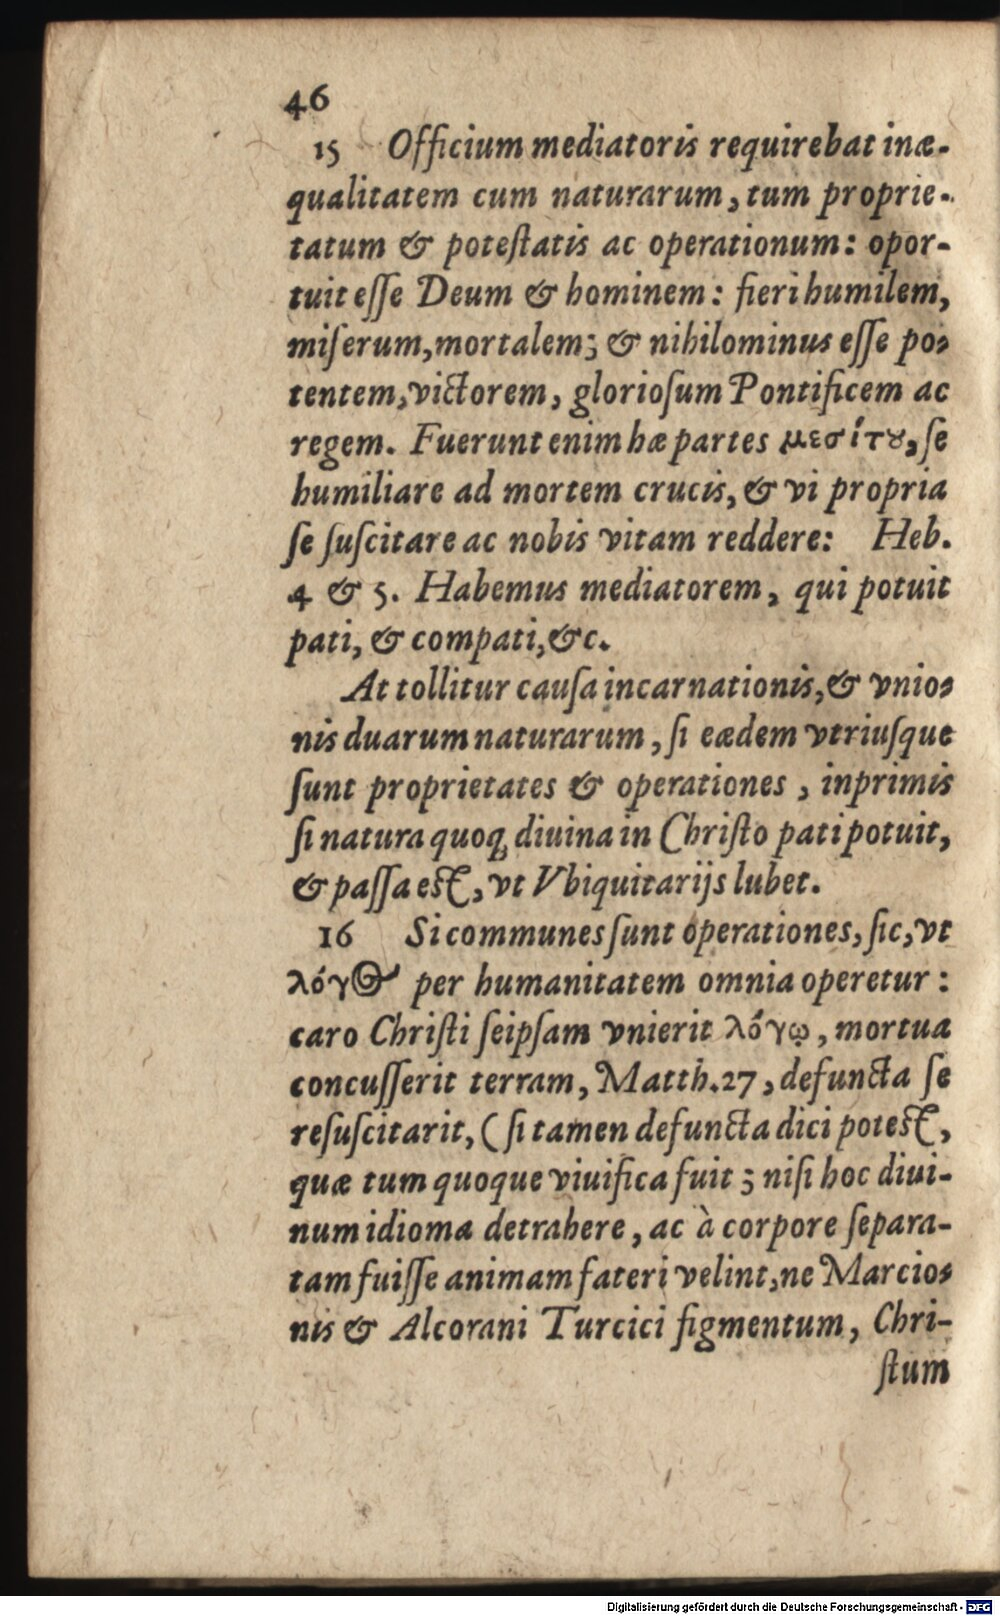 46
15 Officium mediatoris requirebat inæ-
qualitatem cum naturarum, tum proprie-
tatum & poteſtatis ac operationum: opor-
tuit eſſe Deum & hominem: fieri humilem,
miſerum, mortalem; & nihilominus eſſe po-
tentem, victorem, glorioſum Pontificem ac
regem. Fuerunt enim hæ partes μεσίτȣ, ſe
humiliare ad mortem crucis, & vi propria
ſe ſuſcitare ac nobis vitam reddere: Heb.
4 & 5. Habemus mediatorem, qui potuit
pati, & compati, &c.
At tollitur cauſa incarnationis, & vnio-
nis duarum naturarum, ſi eædem vtriuſque
ſunt proprietates & operationes, inprimis
ſi natura quoq; diuina in Chriſto pati potuit,
& paſſa eſt, vt Vbiquitarijs lubet.
16 Si communes ſunt operationes, ſic, vt
λόγος per humanitatem omnia operetur:
caro Chriſti ſeipſam vnierit λόγῳ, mortua
concuſſerit terram, Matth. 27, defuncta ſe
reſuſcitarit, (ſi tamen defuncta dici poteſt,
quæ tum quoque viuifica fuit; niſi hoc diui-
num idioma detrahere, ac à corpore ſepara-
tam fuiſſe animam fateri velint, ne Marcio-
nis & Alcorani Turcici figmentum, Chri-
ſtum
Digitalisierung gefördert durch die Deutsche Forschungsgemeinschaft - DFG